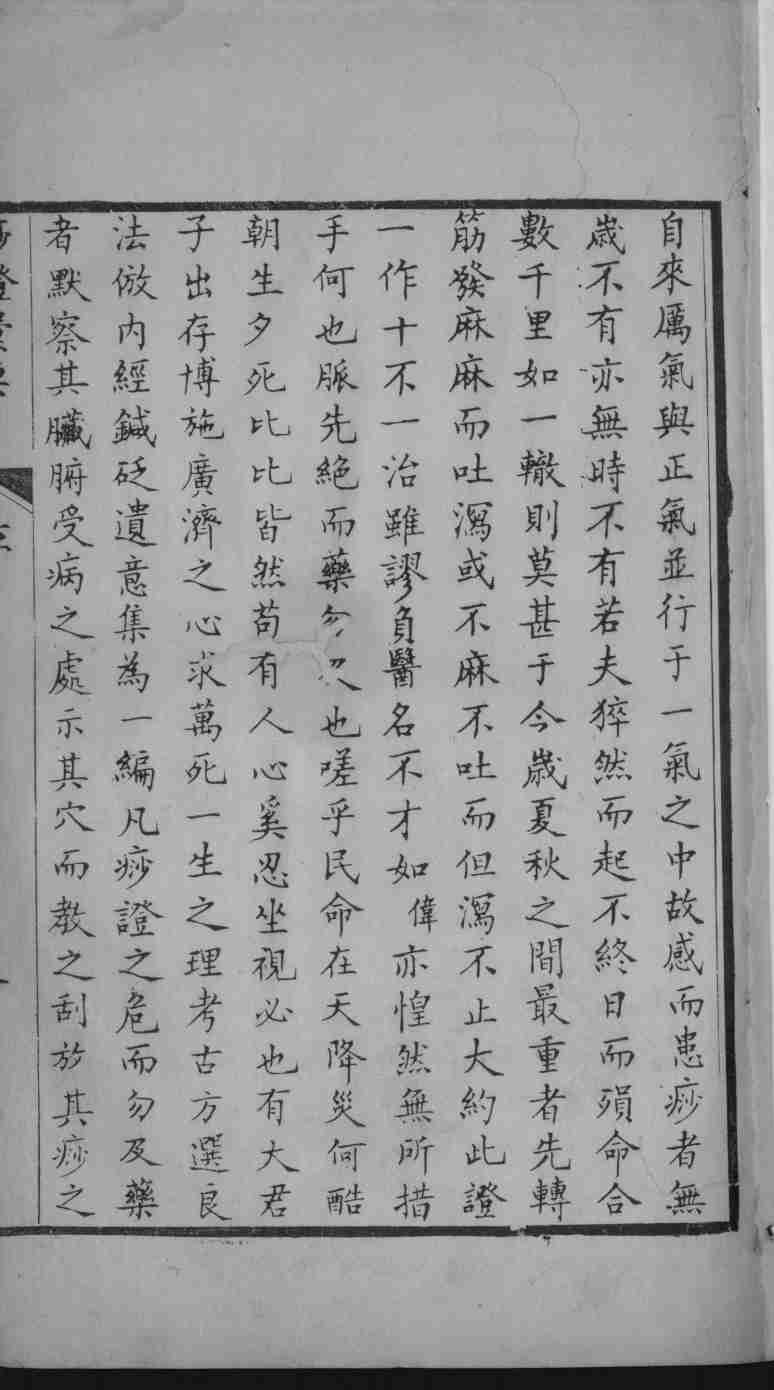 自來厲氣與正氣並行于一氣之中故感而患痧者無
歲不有亦無時不有若夫猝然而起不終日而殞命合
數千里如一轍則莫甚于今歲夏秋之間最重者先轉
筋發麻麻而吐瀉或不麻不吐而但瀉不止大約此證
一作十不一治雖謬負醫名不才如偉亦惶然無所措
手何也脈先絕而藥勿及也嗟乎民命在天降災何酷
朝生夕死比比皆然苟有人心奚忍坐視必也有大君
子出存博施廣濟之心求萬死一生之理考古方選良
法倣內經鍼砭遺意集為一編凡痧證之危而勿及藥
者默察其臟腑受病之處示其穴而教之刮放其痧之